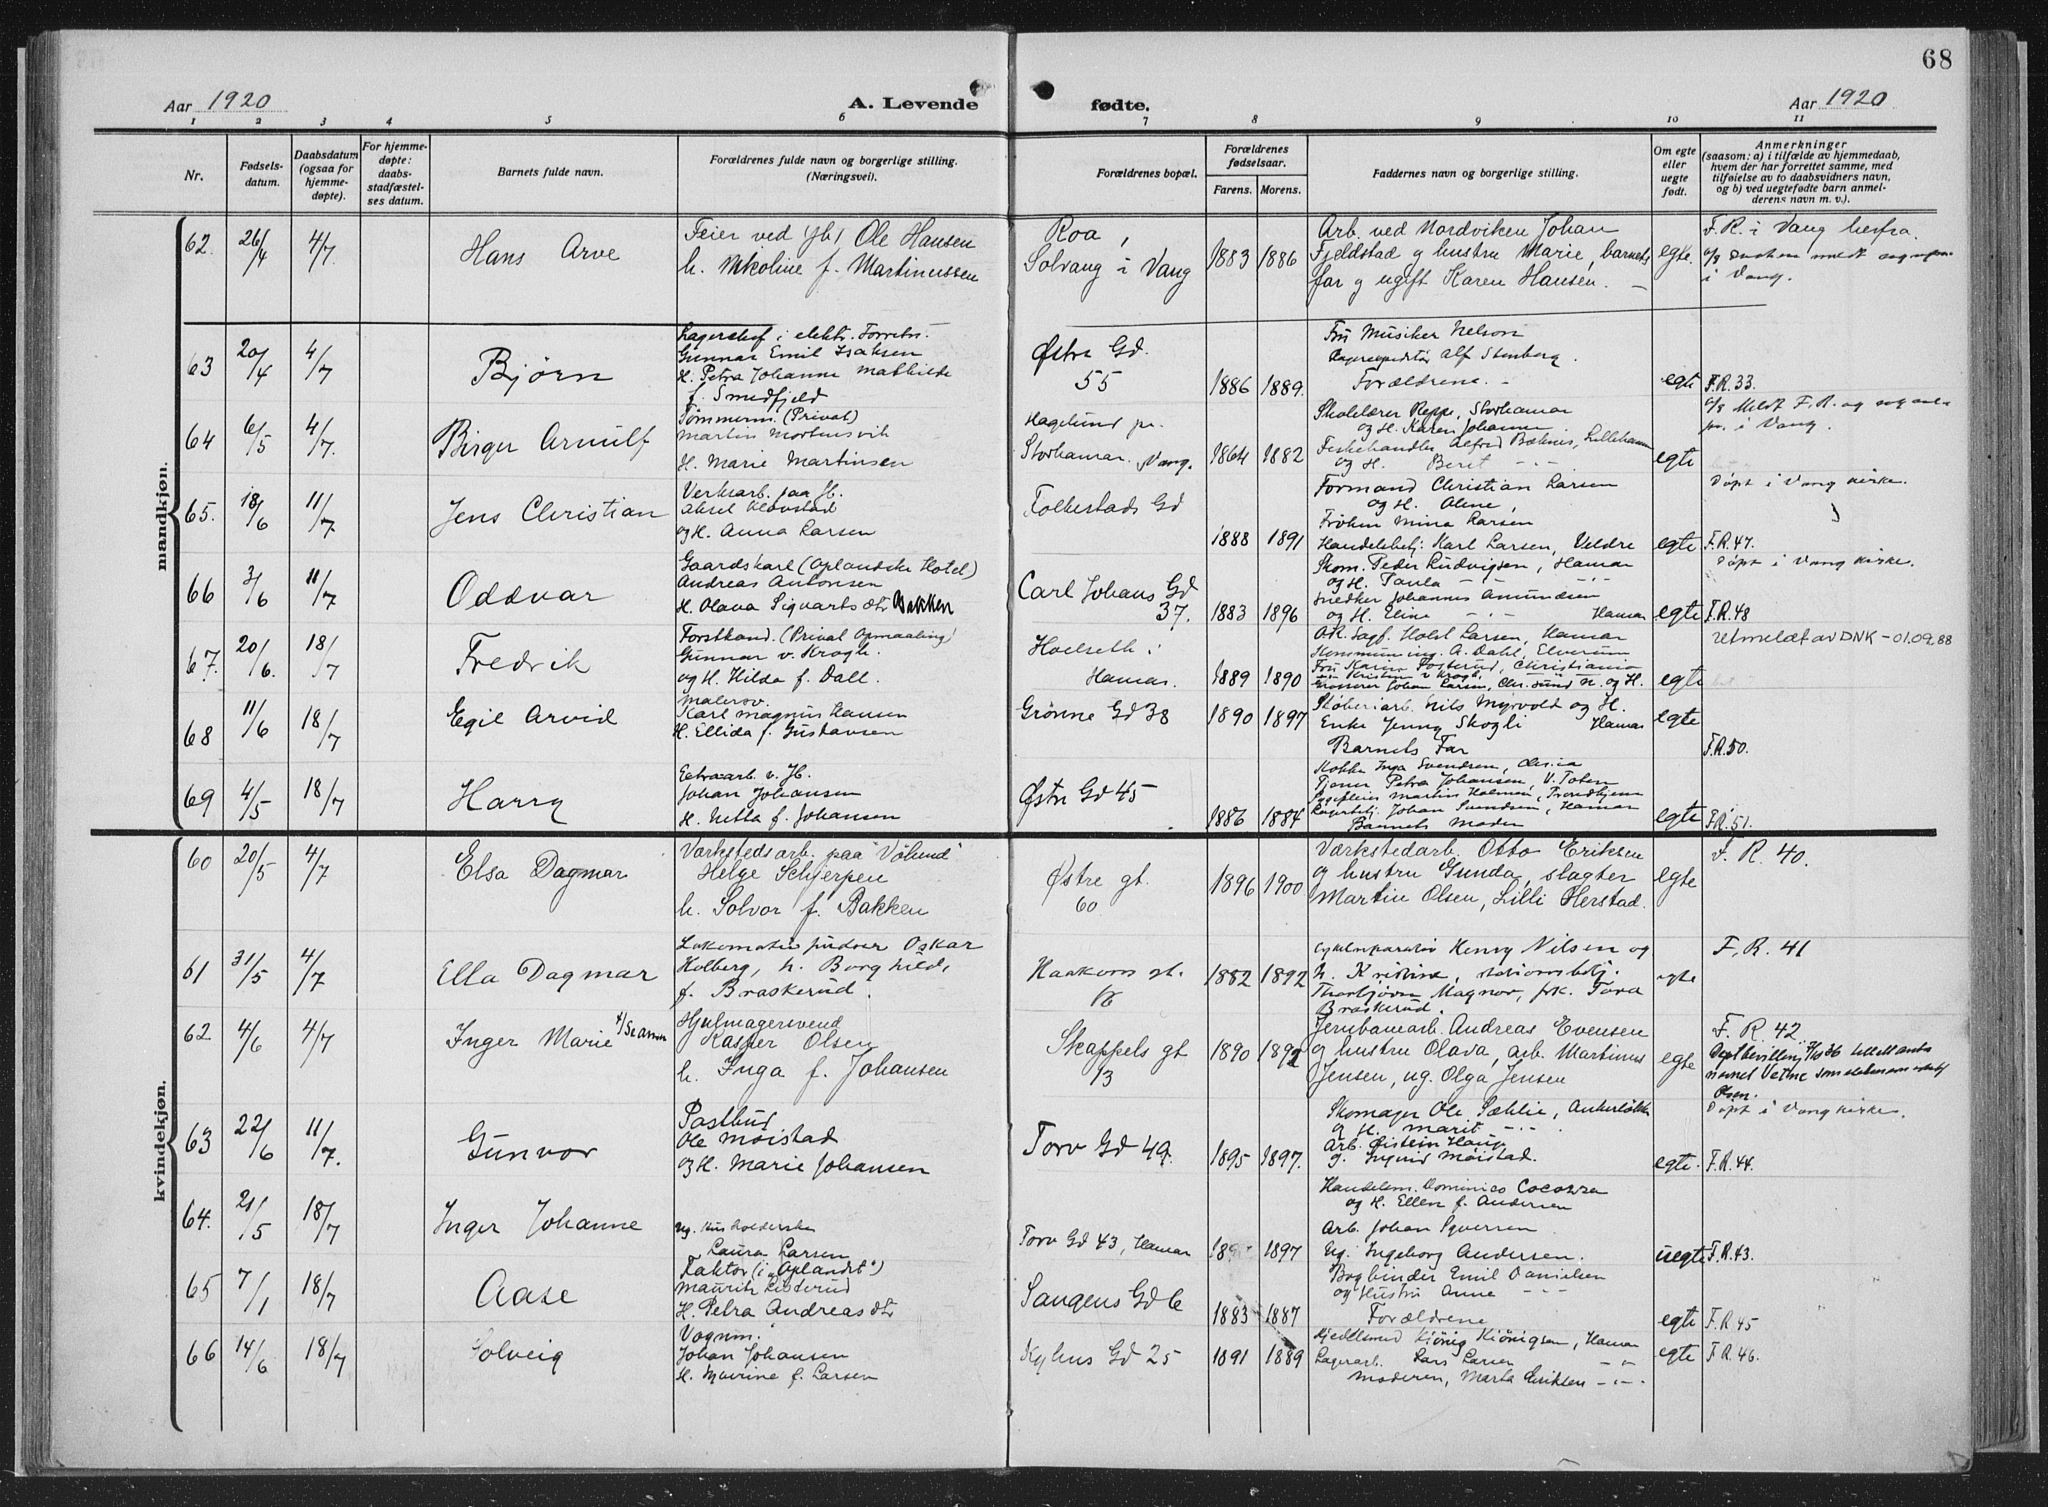 68
Aar 1920
A. Levende
fødte.
Aar 1920
1 2 3 4 5 6 7 8 9 10 11
Nr.
Fødsels-
datum.
Daabsdatum
(ogsaa for
hjemme-
døpte).
For hjemme-
døpte:
daabs-
stadfæstel-
ses datum.
Barnets fulde navn.
Forældrenes fulde navn og borgerlige stilling.
(Næringsvei).
Forældrenes bopæl.
Forældrenes
fødselsaar.
Farens. Morens.
Faddernes navn og borgerlige stilling.
Om egte
eller
uegte
født.
Anmerkninger
(saasom: a) i tilfælde av hjemmedaab,
hvem der har forrettet samme, med
tilføielse av to daabsvidners navn,
og b) ved uegtefødte barn anmel-
derens navn m. v.).
mandkjøn.
62. 26/4 4/7. Hans Arve
Feier ved Jb, Ole Hansen
h. Nikoline f. Martinussen
Roa,
Solvang i Vang
1883 1886
Arb. ved Nordviken Johan
Fjeldstad g hustru Marie, barnets
far g ugift Karen Hansen.
egte.
F. R. i Vang herfra.
i Vang.
63 20/4 4/7 Bjørn
Lagerchef i elektr. Forretn.
Gunnar Emil Isaksen
H. Petra Johanne Mathilde
f. Smedfjeld
Østre Gd.
55
1886 1889.
Fru Musiker Nelson
Lagerexpeditør Alf Stenberg.
Forældrene.
egte F.R. 33.
64 6/5 4/7. Birger Arnulf
Tømmerm. (Privat)
Martin Morthensvik
H. Marie Martinsen
Hagelund pr.
Storhamar. Vang.
1864 1882
Skolelærer Reppe, Storhamar
og H. Karen Johanne
Fiskehandler Alfred Bæknes, Lillehamm
og H. Beret
egte
6/8 Meldt F.R. og sogne-
pr. i Vang.
65. 18/6 11/7 Jens Christian
Verksarb. paa Jb.
Aksel Klovstad
og H. Anna Larsen
Folkestads Gd
1888 1891
Formand Christian Larsen
og H. Aline,
Frøken Mina Larsen
Handelsbetj. Karl Larsen, Veldre
egte F.R. 47.
Døpt i Vang kirke.
66 3/6 11/7 Oddvar
Gaardskarl (Oplandske Hotel)
Andreas Antonsen
H. Olava Sigvartsdtr Bakken
Carl Johans Gd
37.
1883 1896
Skom. Peder Ludvigsen, Hamar
og H. Paula
Snedker Johannes Amundsen
og H. Eline Hamar
egte F.R. 48
Døpt i Vang kirke.
67. 20/6. 18/7 Fredrik
Forstkand. (Privat Opmaaling)
Gunnar v. Krogh.
og H. Hilda f. Dall.
Hoelseth
Hamar.
1889 1890
O.R. Sagf. Holst Larsen, Hamar
Kommuning. A. Dahl, Elverum
Fru Karin Fosterud, Christiania
Kristian v Krogh,
Grosserer Johan Larsen, Chr.sund N. og H.
egte
utmeldt av DNK - 01.09.88
68 11/6 18/7 Egil Arvid
Malersv.
Karl Magnus Hansen
H. Ellida f. Gustavsen
Grønne Gd 38
1890 1897
Støberiarb. Nils Myrvold og H.
Enke Jenny Skogli Hamar
Barnets Far
egte F.R. 50.
69 4/5 18/7 Harry
Extraarb. v. Jb.
Johan Johansen
H. Netta f. Johansen
Østre Gd 45
1886 1884
Kokke Inga Svendsen, Chr.ia
Tjener Petra Johansen, V. Toten
Martin Holmen, Trondhjem
Lagerbetj. Johan Svendsen, Hamar
Barnets Moder
egte F.R. 51.
kvindekjøn.
60 20/5 4/7 Elsa Dagmar
Værkstedsarb. paa "Vølund"
Helge Schjerpen
h. Solvor f. Bakken
Østre gt.
60
1896 1900
Værkstedarb. Otto Eriksen
g hustru Gunda, slagter
Martin Olsen, Lilli Herstad.
egte
F. R. 40.
61 31/5 4/7 Ella Dagmar
Lokomotivpudser Oskar
Holberg, h. Borghild,
f. Braskerud.
Haakons gt.
16
1882 1892
Cykelreparatør Henry Nilsen og
h. Kristine, stationsbetj.
Thorbjørn Magnor, frk. Tora
Braskerud.
egte
F. R. 41
62 4/6 4/7 Inger Marie
Hjulmagersvend
Kasper Olsen
h. Inga f. Johansen
Skappels gt
13
1890 1892
Jernbanearb. Andreas Evensen
g hustru Olava, arb. Martinus
Jensen, ug. Olga Jensen
egte
F. R. 42.
Olsen.
63 22/6 11/7. Gunvor
Postbud
Ole Moistad
og H. Marie Johansen
Torv Gd 49.
1895 1897.
Skomager Ole Sæhlie, Ankerløkka
og H. Marit
Arb. Øistein Haug
g. Ingrid Moistad.
egte. F.R. 44.
Døpt i Vang kirke.
64. 21/5 18/7 Inger Johanne
Ug. Husholderske
Laura Larsen
Torv Gd 43, Hamar
1897
Handelsm. Dominico Cocozza
og H. Ellen f. Andersen
Arb. Johan Syversen
Ug. Ingeborg Andersen.
uegte F.R. 43.
65 7/1 18/7 Aase
Faktor (i "Oplandet")
Mauritz Listerud
H. Petra Andreasdtr
Sangens Gd 6
1883 1887
Bogbinder Emil Danielsen
og Hustru Anne
Forældrene
egte F.R. 45
66 14/6 18/7 Solveig
Vognm.
Johan Johansen
H. Maurine f. Larsen
Kyhns Gd 25
1891 1889
Kiönig Kiönigsen, Hamar
Lagerarb. Lars Larsen
Moderen, Marta Eriksen
egte F.R. 46.